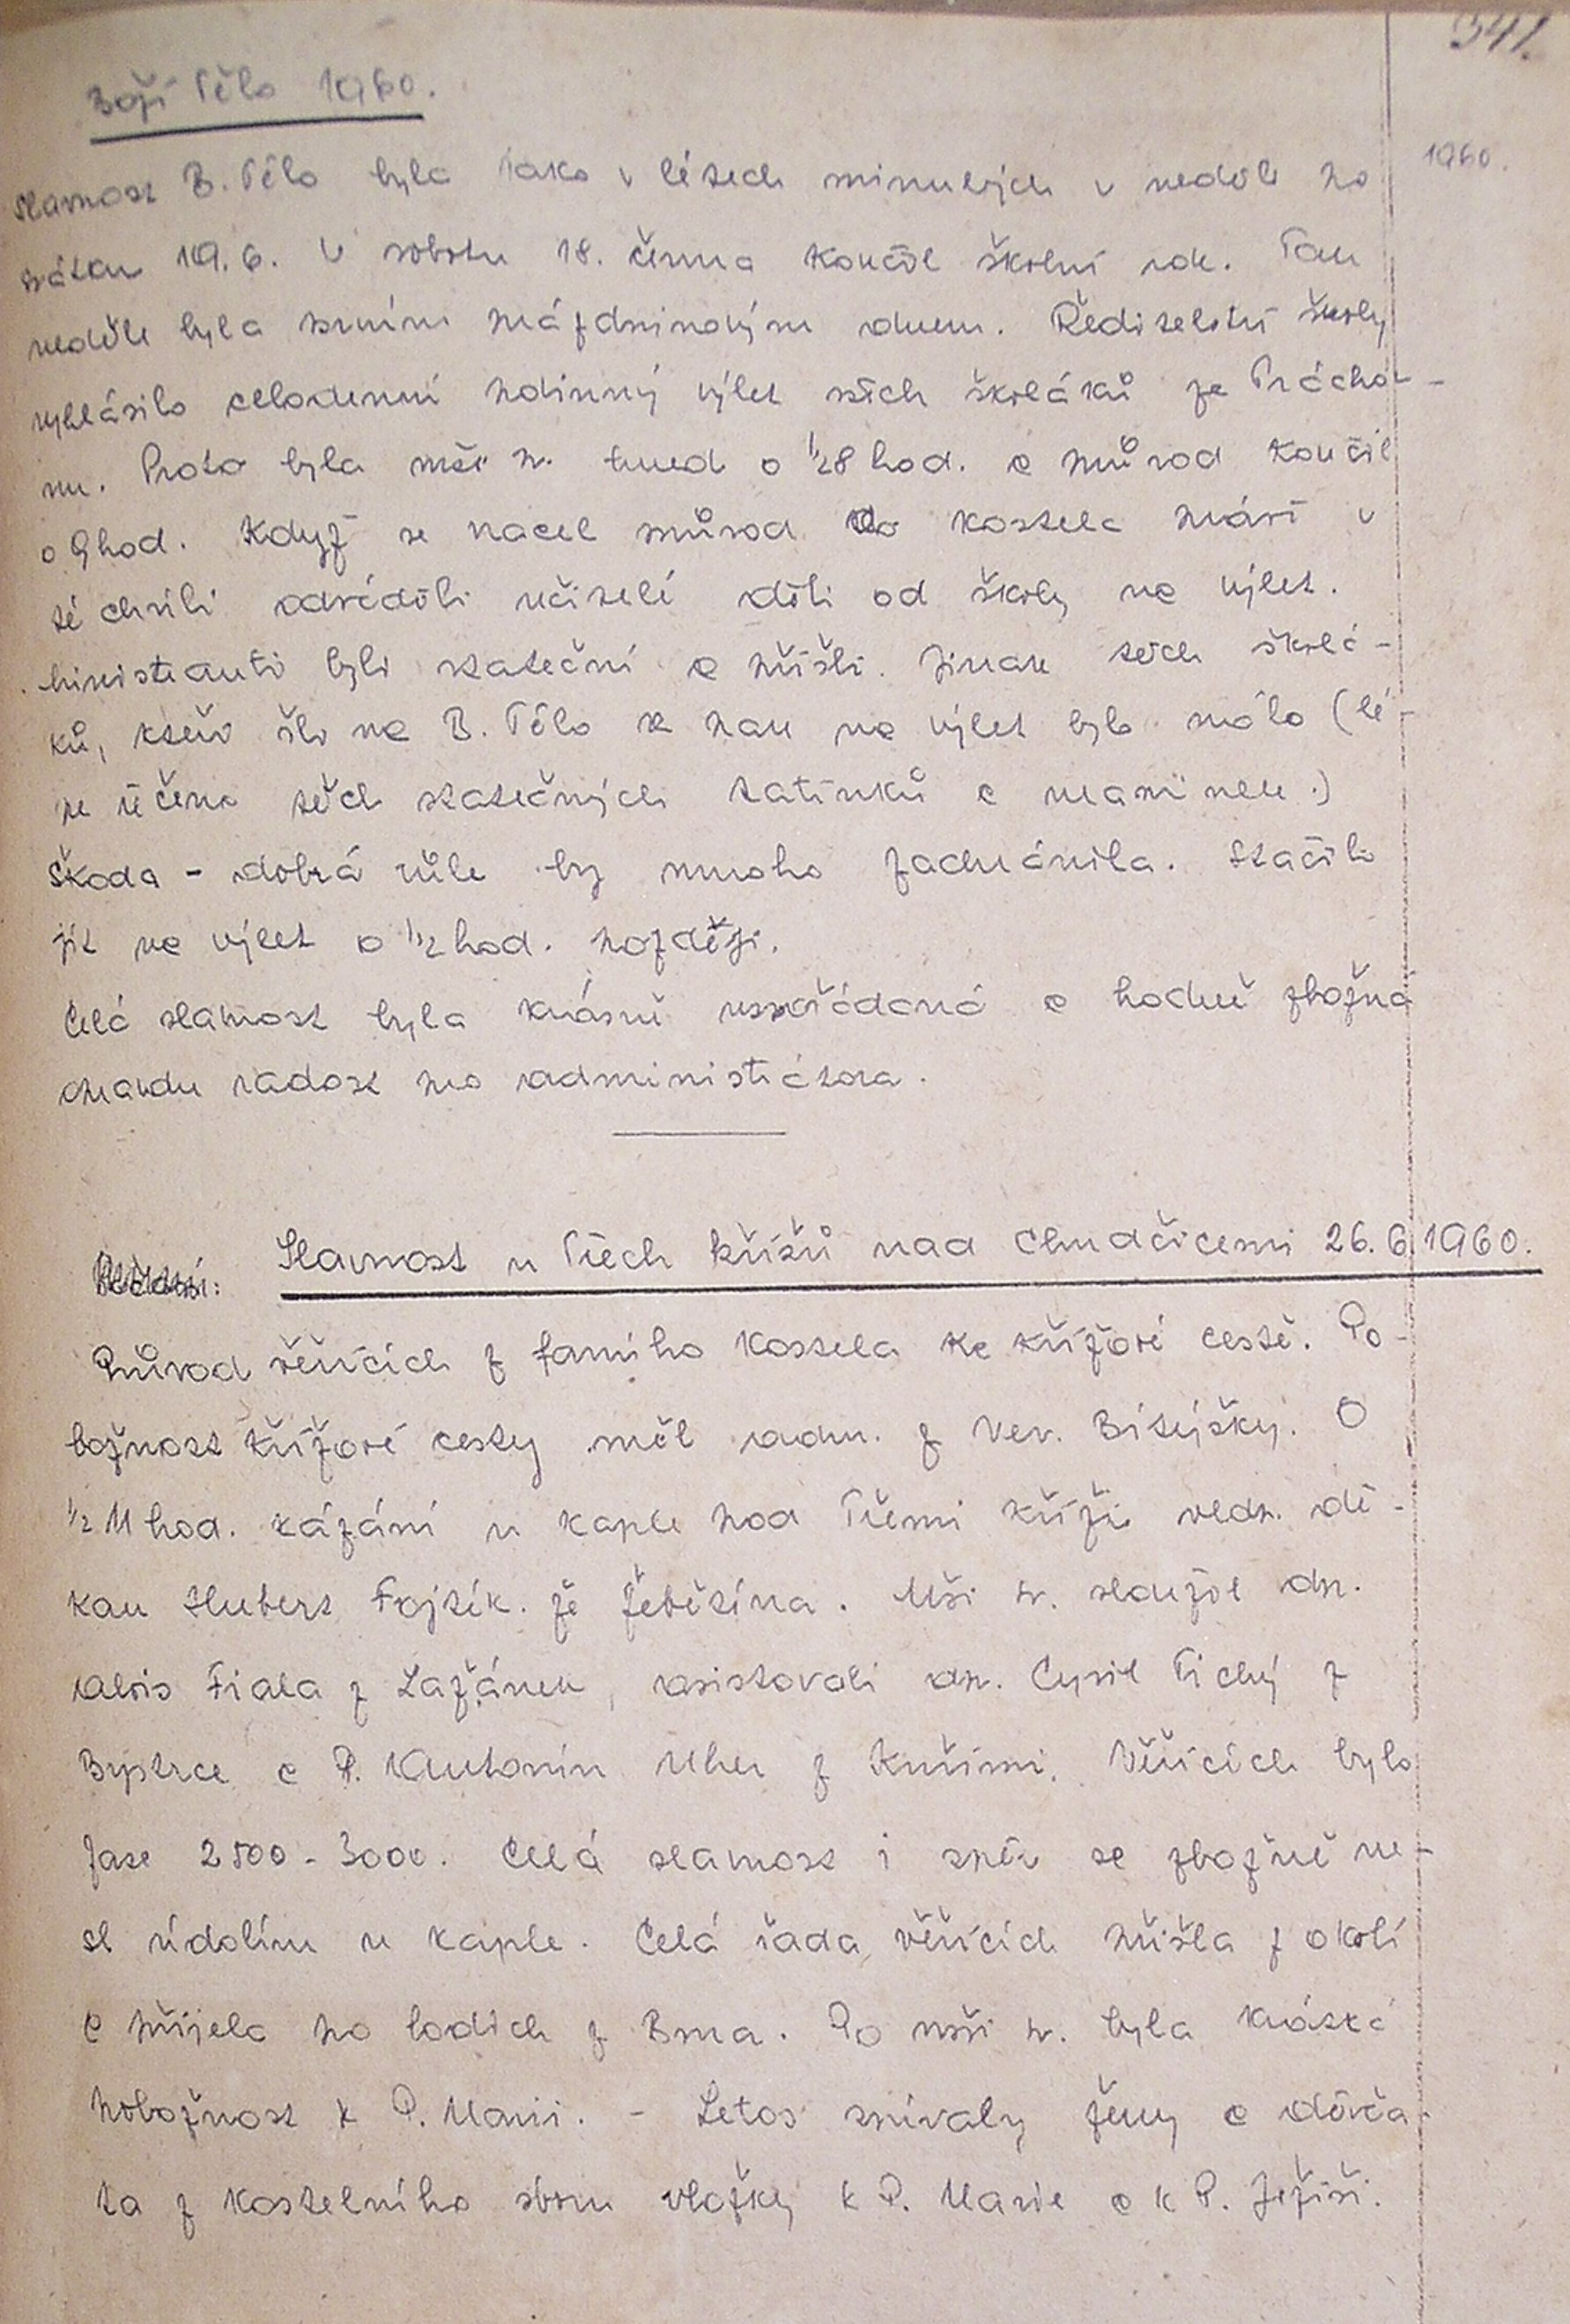 341.
Boží Tělo 1960.
1960.
Slavnost B. Tělo byla jako v létech minulých v neděli po
svátku 19. 6. V sobotu 18. června končil školní rok. Tak
neděle byla prvním prázdninovým dnem. Ředitelství školy
vyhlásilo celodenní povinný výlet všech školáků ze Prácho-
nu. Proto byla mše sv. hned o 1/2 8 hod. a průvod končil
o 9 hod. Když se vracel průvod do kostela právě v
té chvíli odváděli učitelé děti od školy na výlet.
Ministranti byli stateční a přišli. Jinak těch školá-
ků, kteří šli na B. Tělo a pak na výlet bylo málo (lé-
pe řečeno těch statečných tatínků a maminek.)
Škoda - dobrá vůle by mnoho zachránila. Stačilo
jít na výlet o 1/2 hod. později.
Celá slavnost byla krásně uspořádaná a hodně zbožná
opravdu radost pro administrátora.
Slavnost u Třech křížů nad Chudčicemi 26. 6. 1960.
Průvod věřících z farního kostela ke křížové cestě. Po-
božnost křížové cesty měl adm. z Vev. Bítýšky. O
1/2 11 hod. kázání u kaple pod Třemi kříži vldp. dě-
kan Hubert Fojtík ze Žebětína. Mši sv. sloužil dp.
Alois Fiala z Lažánek, asistovali dp. Cyril Tichý z
Bystrce a P. Antonín Uher z Kuřimi. Věřících bylo
zase 2500 - 3000. Celá slavnost i zpěv se zbožně ne-
sl údolím u kaple. Celá řada věřících přišla z okolí
a přijela po lodích z Brna. Po mši sv. byla krátká
pobožnost k P. Marii. - Letos zpívaly ženy a děvča-
ta z kostelního sboru vložky k P. Marie a k P. Ježíši.